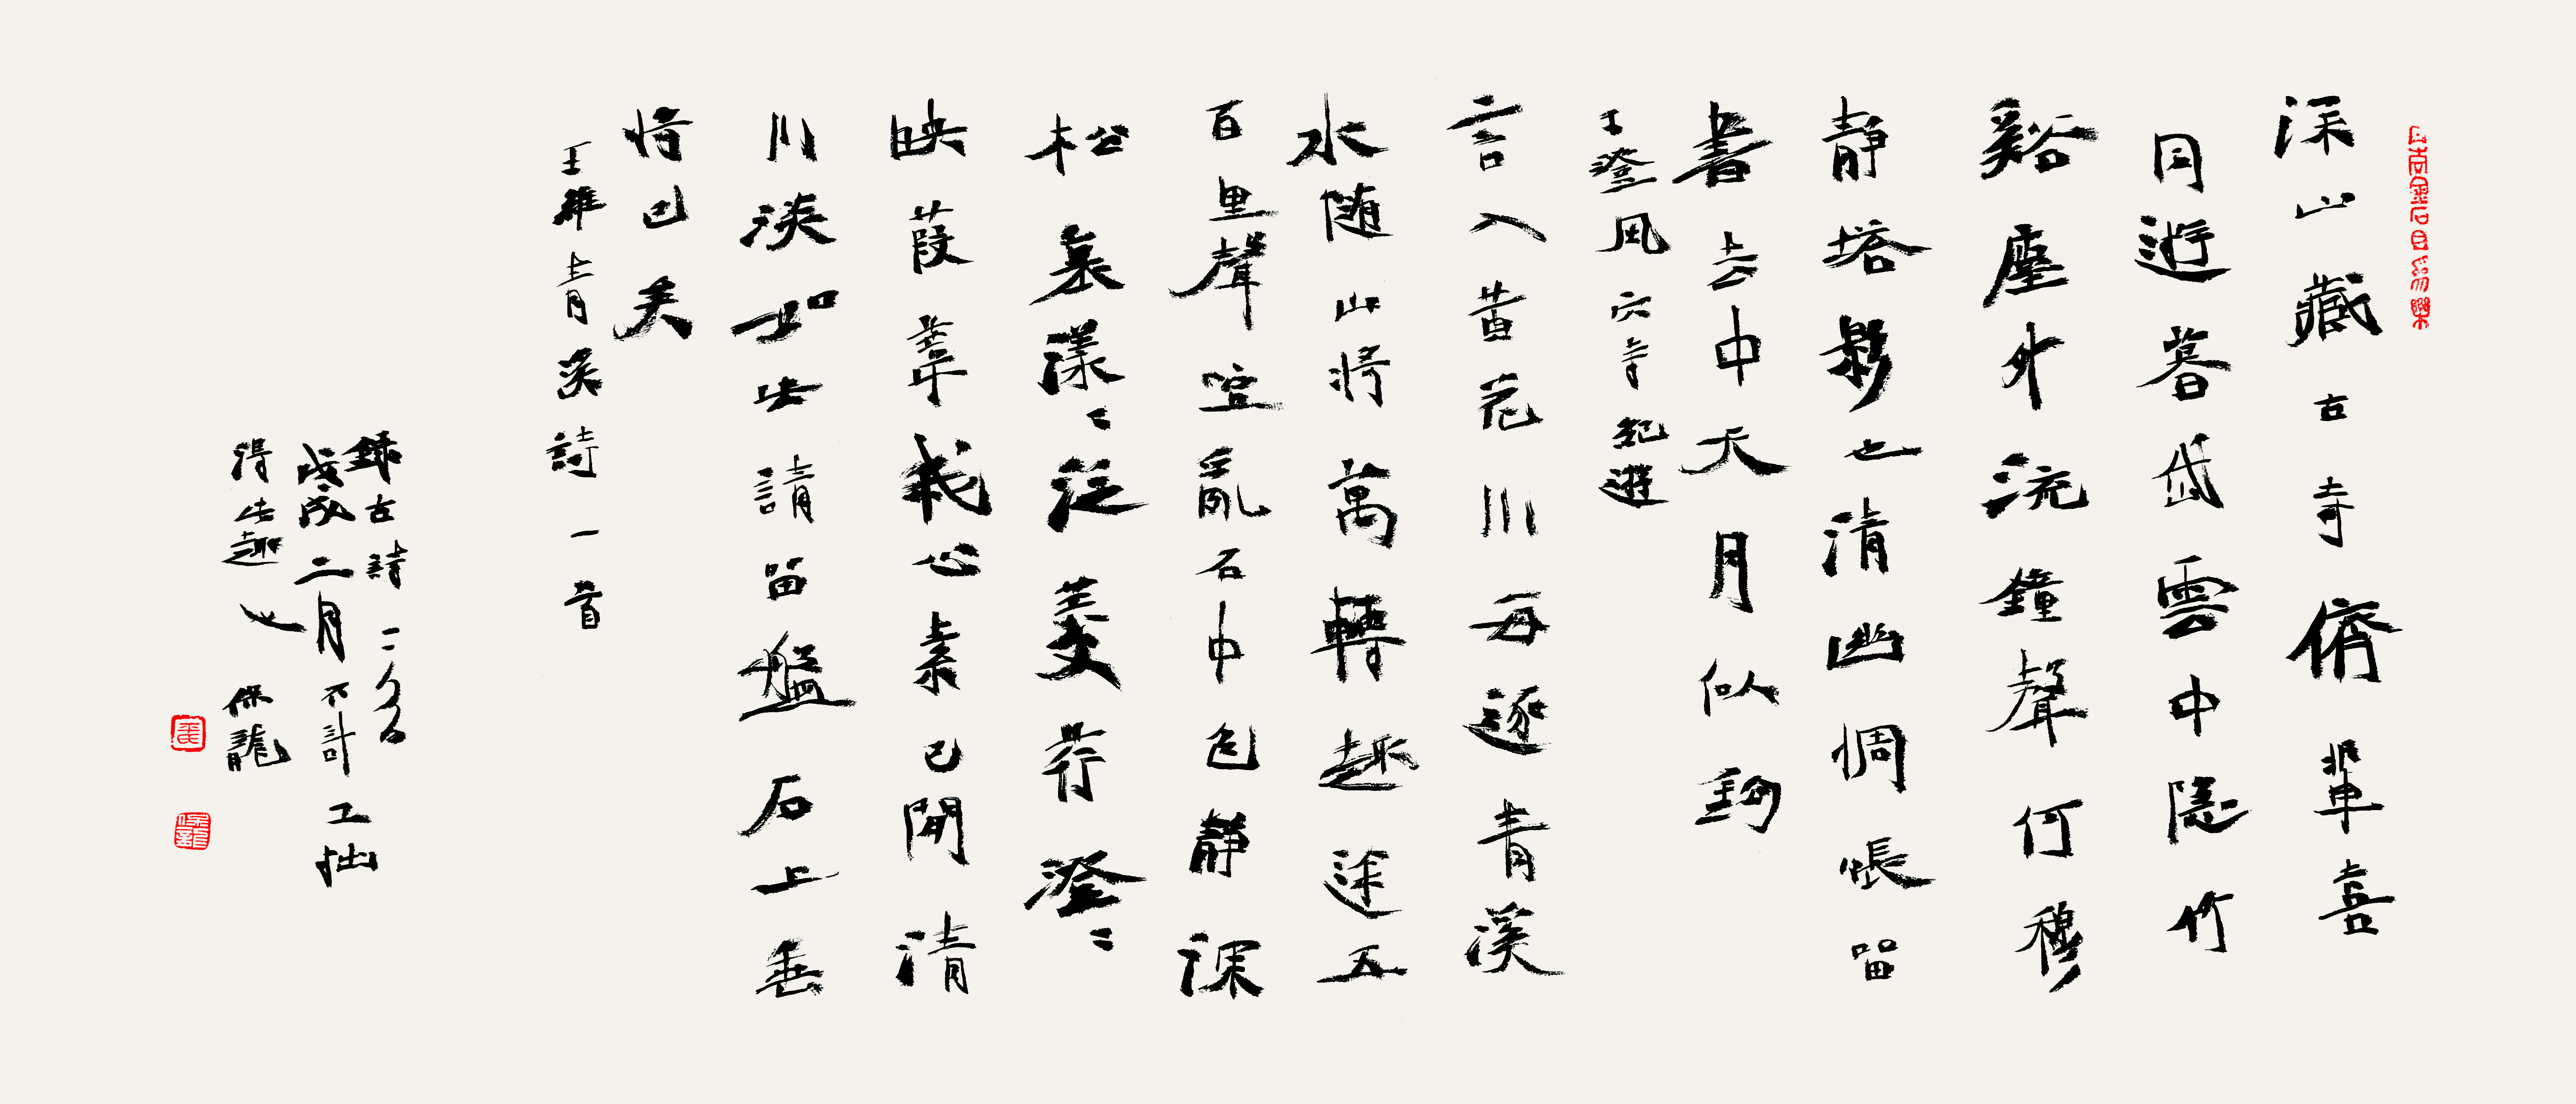 深山藏古寺儕輩喜
同遊暮岱雲中隱竹
谿塵外流鐘聲何穆
靜塔影也清幽惆悵留
書去中天月似鉤
王澄風穴寺紀遊
言入黃花川每逐青溪
水隨山將萬轉趣途五
百里聲喧亂石中色靜深
松裏漾〻泛菱荇澄〻
映葭葦我心素已閑清
川淡如此請留盤石上垂
將已矣
王維青溪詩一首
錄古詩二
戊戌二月不計工拙
得此趣也 保龍